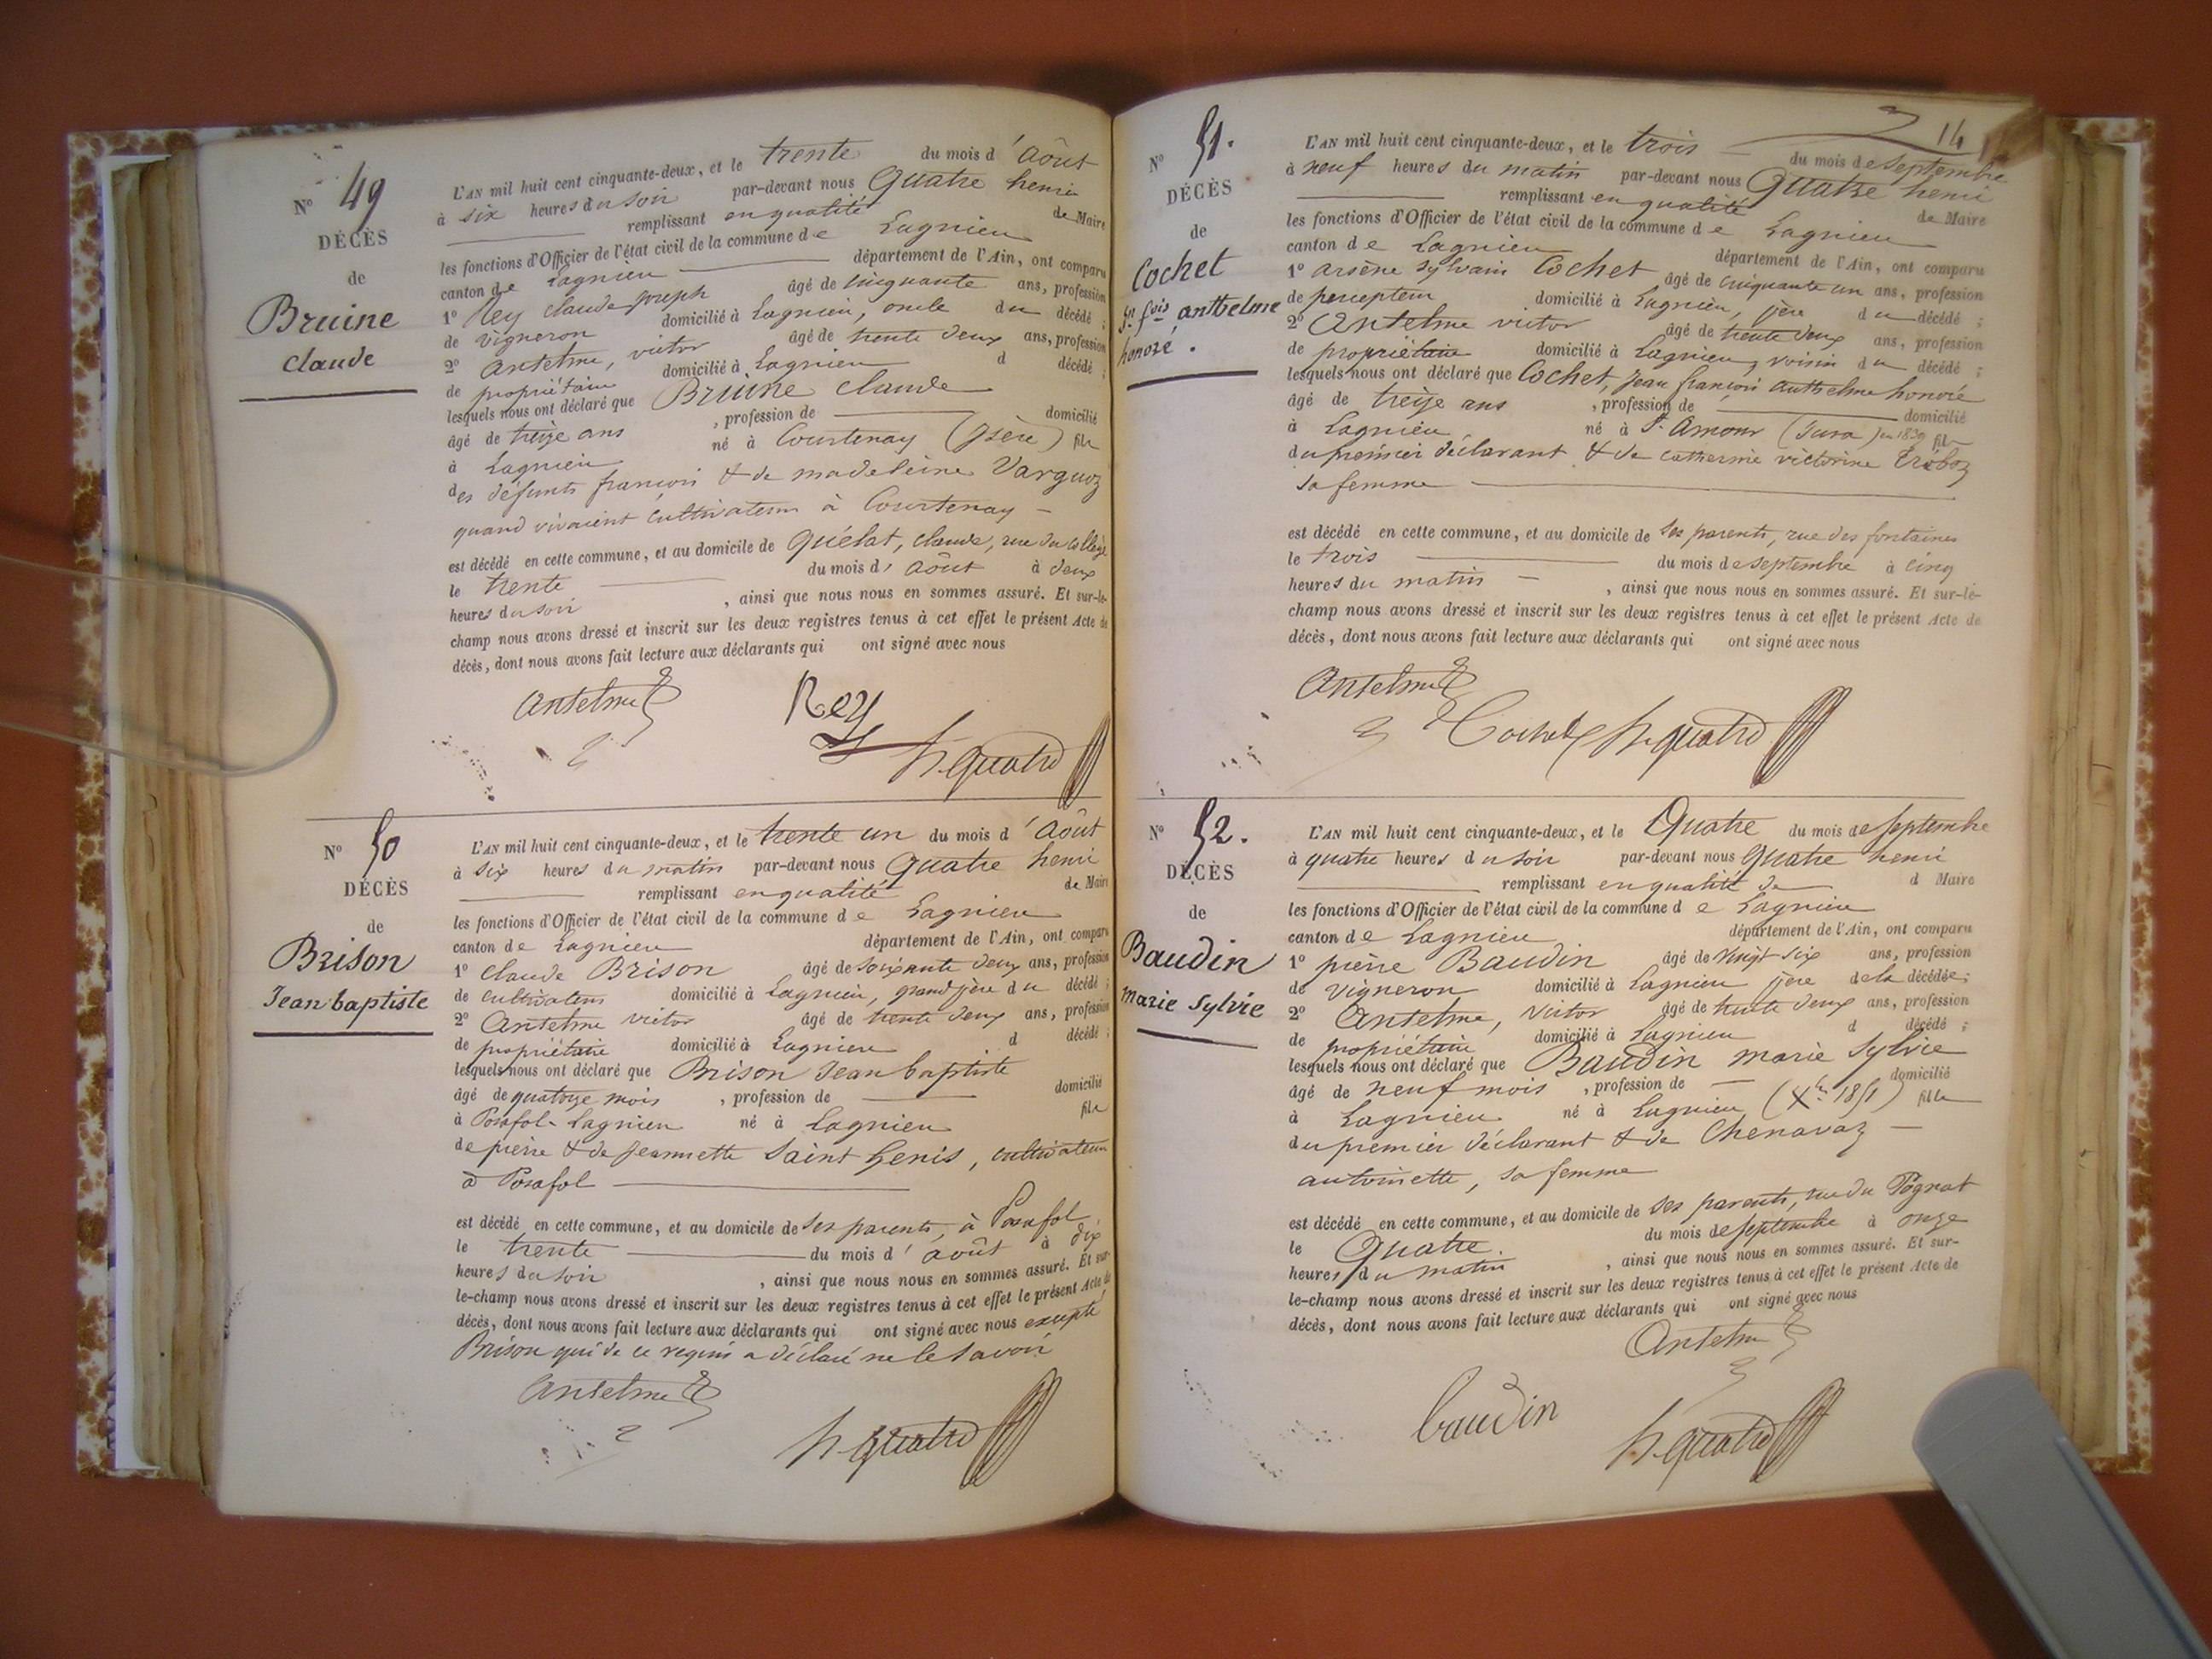 N° 49
DÉCÈS
de
Bruine
claude
L'AN mil huit cent cinquante-deux, et le trente du mois d'Août
à six heures du soir par-devant nous Quatre henri
remplissant en qualité de Maire
les fonctions d'Officier de l'état civil de la commune de Lagnieu
canton de Lagnieu département de l'Ain, ont comparu
1° Rey claude joseph âgé de cinquante ans, profession
de vigneron domicilié à Lagnieu, oncle du décédé ;
2° Antelme, victor âgé de trente deux ans, profession
de propriétaire domicilié à Lagnieu d décédé ;
lesquels nous ont déclaré que Bruine claude
âgé de treize ans , profession de domicilié
à Lagnieu né à Courtenay (Isère) fils
des défunts françois & de madeleine Varguoz
quand vivaient cultivateurs à Courtenay
est décédé en cette commune, et au domicile de Quélat, claude, rue du collège
le trente du mois d'Août à deux
heures du soir , ainsi que nous nous en sommes assuré. Et sur-le-
champ nous avons dressé et inscrit sur les deux registres tenus à cet effet le présent Acte de
décès, dont nous avons fait lecture aux déclarants qui ont signé avec nous
Antelme Rey
h. Quatre
N° 50
DÉCÈS
de
Brison
Jean baptiste
L'AN mil huit cent cinquante-deux, et le trente un du mois d'Août
à six heures du matin par-devant nous Quatre henri
remplissant en qualité de Maire
les fonctions d'Officier de l'état civil de la commune de Lagnieu
canton de Lagnieu département de l'Ain, ont comparu
1° Claude Brison âgé de soixante deux ans, profession
de cultivateur domicilié à Lagnieu, grand père du décédé ;
2° Antelme victor âgé de trente deux ans, profession
de propriétaire domicilié à Lagnieu d décédé ;
lesquels nous ont déclaré que Brison Jean baptiste
âgé de quatorze mois , profession de domicilié
à Posafol-Lagnieu né à Lagnieu fils
de pierre & de Jeannette Saint Genis, cultivateurs
à Posafol
est décédé en cette commune, et au domicile de ses parents, à Posafol
le trente du mois d'août à dix
heures du soir , ainsi que nous nous en sommes assuré. Et sur-
le-champ nous avons dressé et inscrit sur les deux registres tenus à cet effet le présent Acte de
décès, dont nous avons fait lecture aux déclarants qui ont signé avec nous excepté
Brison qui de ce requis a déclaré ne le savoir
Antelme
h. Quatre
14
N° 51.
DÉCÈS
de
Cochet
Jn fois anthelme
honoré.
L'AN mil huit cent cinquante-deux, et le trois du mois de septembre
à neuf heures du matin par-devant nous Quatre henri
remplissant en qualité de Maire
les fonctions d'Officier de l'état civil de la commune de Lagnieu
canton de Lagnieu département de l'Ain, ont comparu
1° arsène sylvain Cochet âgé de cinquante un ans, profession
de percepteur domicilié à Lagnieu, père du décédé ;
2° Antelme victor âgé de trente deux ans, profession
de propriétaire domicilié à Lagnieu, voisin du décédé ;
lesquels nous ont déclaré que Cochet, Jean françois anthelme honoré
âgé de treize ans , profession de domicilié
à Lagnieu né à St Amour (Jura) en 1839 fils
du premier déclarant & de catherine victorine Tréboz
sa femme
est décédé en cette commune, et au domicile de ses parents, rue des fontaines
le trois du mois de septembre à cinq
heures du matin , ainsi que nous nous en sommes assuré. Et sur-le-
champ nous avons dressé et inscrit sur les deux registres tenus à cet effet le présent Acte de
décès, dont nous avons fait lecture aux déclarants qui ont signé avec nous
Antelme
Cochet h. Quatre
N° 52.
DÉCÈS
de
Baudin
marie sylvie
L'AN mil huit cent cinquante-deux, et le Quatre du mois de septembre
à quatre heures du soir par-devant nous Quatre henri
remplissant en qualité de d Maire
les fonctions d'Officier de l'état civil de la commune de Lagnieu
canton de Lagnieu département de l'Ain, ont comparu
1° pierre Baudin âgé de vingt six ans, profession
de vigneron domicilié à Lagnieu père de la décédée ;
2° Antelme, victor âgé de trente deux ans, profession
de propriétaire domicilié à Lagnieu d décédé ;
lesquels nous ont déclaré que Baudin marie Sylvie
âgé de neuf mois , profession de domicilié
à Lagnieu né à Lagnieu (Xbre 1851) fille
du premier déclarant & de Chenavaz
antoinette, sa femme
est décédé en cette commune, et au domicile de ses parents, rue du Pognat
le Quatre. du mois de septembre à onze
heures du matin , ainsi que nous nous en sommes assuré. Et sur-
le-champ nous avons dressé et inscrit sur les deux registres tenus à cet effet le présent Acte de
décès, dont nous avons fait lecture aux déclarants qui ont signé avec nous
Antelme
baudin
h. Quatre